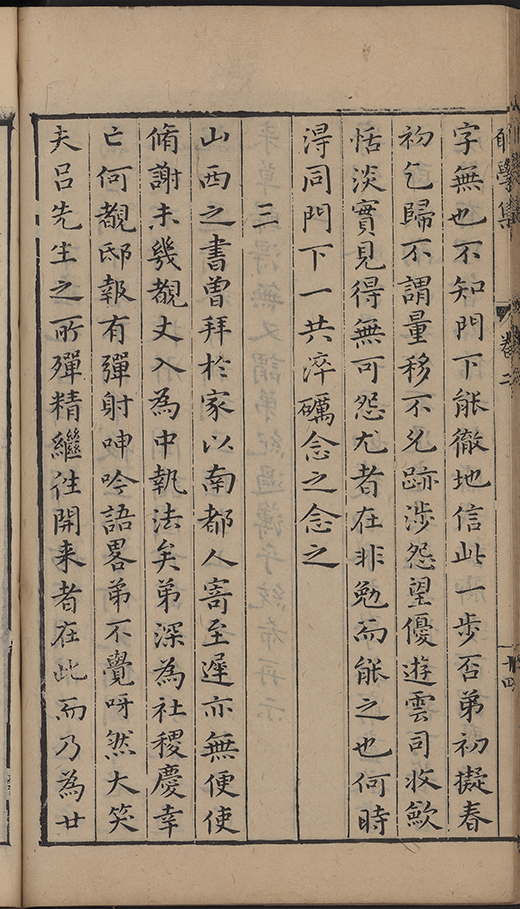 字無也不知門下能徹地信此一步否弟初擬春
初乞歸不謂量移不免跡涉怨望優遊雲司收歛
恬淡實見得無可怨尤者在非勉而能之也何時
淂同門下一共淬礪念之念之
三
山西之書曾拜於家以南都人寄至遲亦無便使
脩謝未幾覩丈入為中執法矣弟深為社稷慶幸
亡何覩邸報有彈射呻吟語畧弟不覺呀然大笑
夫呂先生之所殫精繼徃開来者在此而乃為廿
卷二
十四